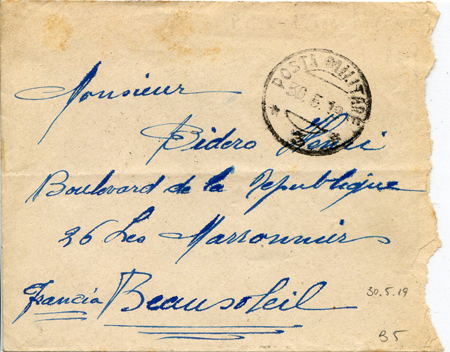 POSTA MILITARE
30.5.19
* 3 *
Monsieur
Bidero Henri
Boulevard de la Republique
36 Les Marronniers
Francia Beausoleil
30.5.19
B5